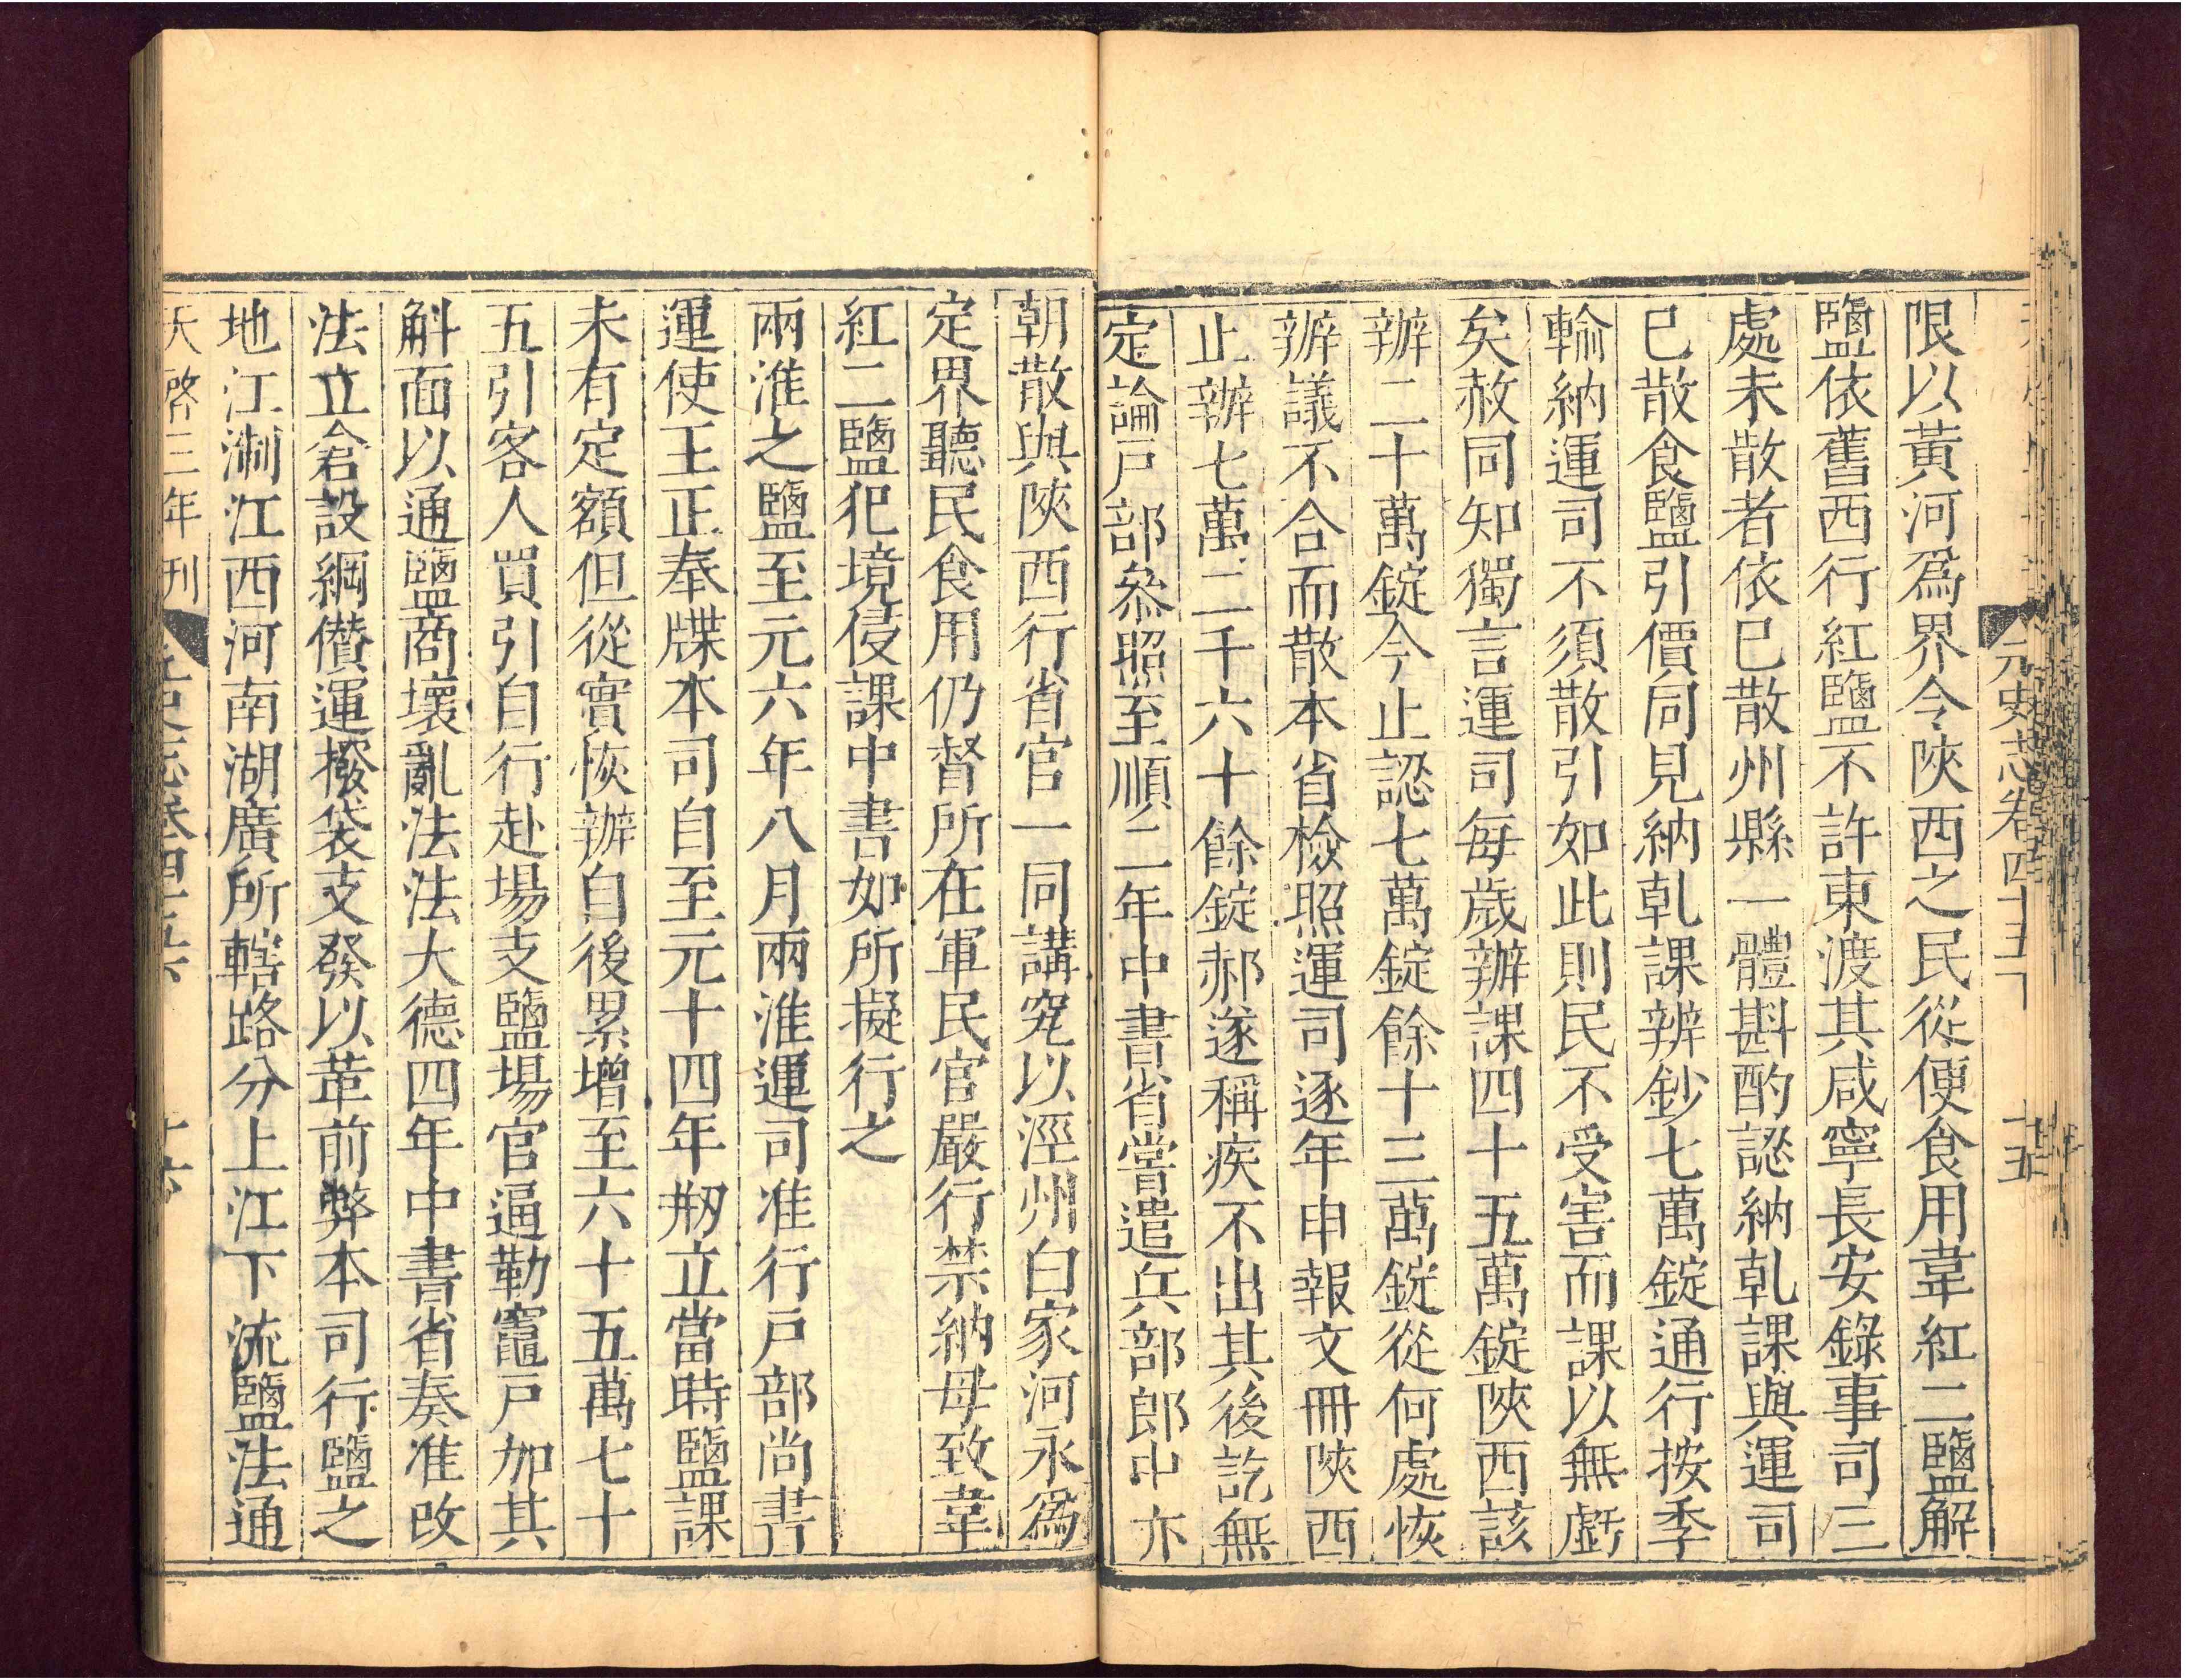 元史志卷四十五下
十五
限以黃河爲界令陝西之民從便食用韋紅二鹽解
鹽依舊西行紅鹽不許東渡其咸寧長安錄事司三
處未散者依巳散州縣一體斟酌認納乹課與運司
巳散食鹽引價同見納乹課辨鈔七萬錠通行按季
輸納運司不須散引如此則民不受害而課以無虧
矣赦同知獨言運司每歲辦課四十五萬錠陝西該
辦二十萬錠今止認七萬錠餘十三萬錠從何處恢
辦議不合而散本省檢照運司逐年申報文冊陝西
止辦七萬二千六十餘錠郝遂稱疾不出其後訖無
定論戶部參照至順二年中書省嘗遣兵部郎中亦
朝散與陝西行省官一同講究以涇州白家河永爲
定界聽民食用仍督所在軍民官嚴行禁納毋致韋
紅二鹽犯境侵課中書如所擬行之
兩淮之鹽至元六年八月兩淮運司准行戶部尚書
運使王正奉牒本司自至元十四年剏立當時鹽課
未有定額但從實恢辦自後累增至六十五萬七十
五引客人買引自行赴場支鹽場官逼勒竈戶加其
斛面以通鹽商壞亂法法大德四年中書省奏准改
法立倉設綱儹運撥袋支發以革前弊本司行鹽之
地江淛江西河南湖廣所轄路分上江下流鹽法通
天啓三年刊
十六